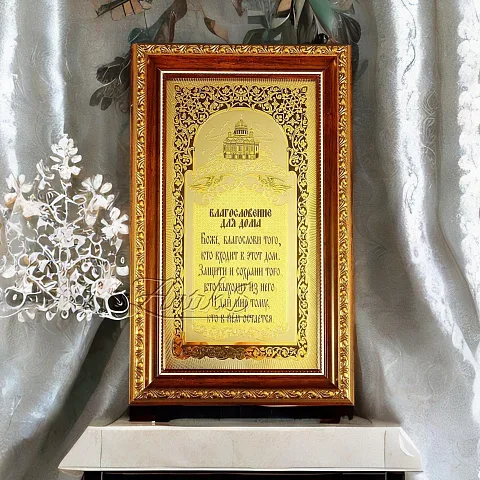 БЛАГОСЛОВЕНИЕ
ДЛЯ ДОМА
Боже, благослови того,
кто входит в этот дом.
Защити и сохрани того,
кто выходит из него.
И дай мир тому,
кто в нём остается.